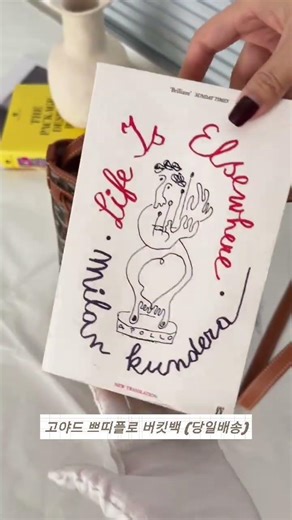 'Brilliant' SUNDAY TIMES
Life Is Elsewhere
Milan Kundera
APOLLO
NEW TRANSLATION
THE
PACKAGE
고야드 쁘띠플로 버킷백 (당일배송)